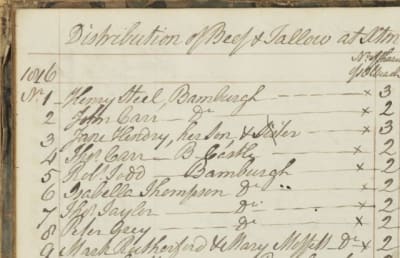 Distribution of Beef & Tallow at Xtm
No. of
of lb each
1846
No. 1 Henry Steel, Bamburgh × 3
2 John Carr Do × 2
3 Jane Hendry, her son & Sister × 3
4 Thos Carr B. Castle × 2
5 Robt Todd Bamburgh × 2
6 Isabella Thompson Do " × 2
7 Thos Taylor Do × 2
8 Peter Grey Do × 2
9 Mark Rutherford & Mary Moffitt Do × 2